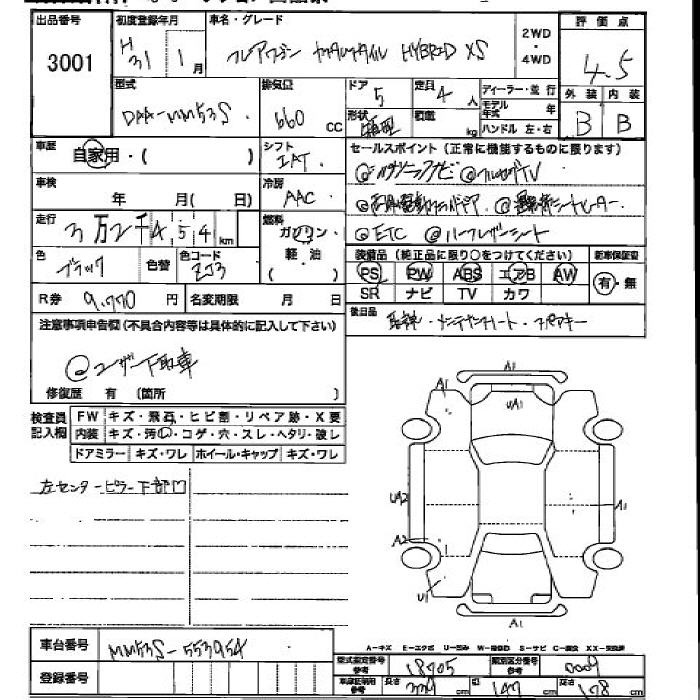 出品番号 初度登録年月 車名・グレード 2WD・4WD 評価点
3001 H 31 1月 フレアワゴン カスタムスタイル HYBRID XS 4.5
型式 排気量 ドア 定員 ディーラー・並行 外装 内装
DAA-MM53S 660 cc 5 4人 モデル年式 年 B B
形状 箱型 積載 kg ハンドル 左・右
車歴 自家用・( ) シフト IAT セールスポイント(正常に機能するものに限ります)
車検 年 月( 日) 冷房 AAC @パナソニックナビ @フルセグTV
@両側電動スライドドア @運転席シートヒーター
走行 3万2千454km 燃料 ガソリン 軽・油 ( ) @ETC @ハーフレザーシート
色 ブラック 色替 色コード ZJ3 装備品(純正品に限り○をつけてください) 新車保証書
PS PW ABS エアB AW 有・無
SR ナビ TV カワ
R券 9,770円 名変期限 月 日
注意事項申告欄(不具合内容等は具体的に記入して下さい) 後日品 取説・メンテナンスノート・スペアキー
@ユーザー下取車
修復歴 有 〔箇所 〕
検査員記入欄 FW キズ・飛石・ヒビ割・リペア跡・X要
内装 キズ・汚レ・コゲ・穴・スレ・ヘタリ・破レ
ドアミラー キズ・ワレ ホイール・キャップ キズ・ワレ
左センターピラー下部凹
A1
A1
UA1
UA2
A1
A2
U1
A1
車台番号 MM53S-553954
A−キズ E−エクボ U−凹み W−補修跡 S−サビ C−腐食 XX−交換済
登録番号 型式指定番号 参考 18705 類別区分番号 参考 0009
車庫証明用 参考 長さ 339cm 幅 147cm 高さ 178cm